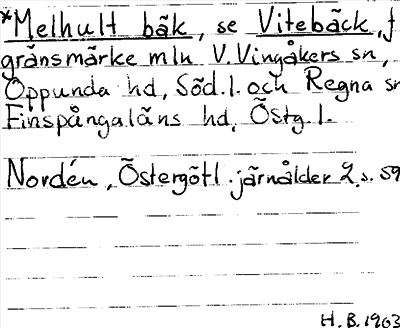 *Melhult bäk, se Vitebäck, f
gränsmärke mln V. Vingåkers sn,
Oppunda hd, Söd. l. och Regna sn
Finspångaläns hd, Östg. l.
Nordén, Östergötl. järnålder 2, s. 59
H. B. 1963